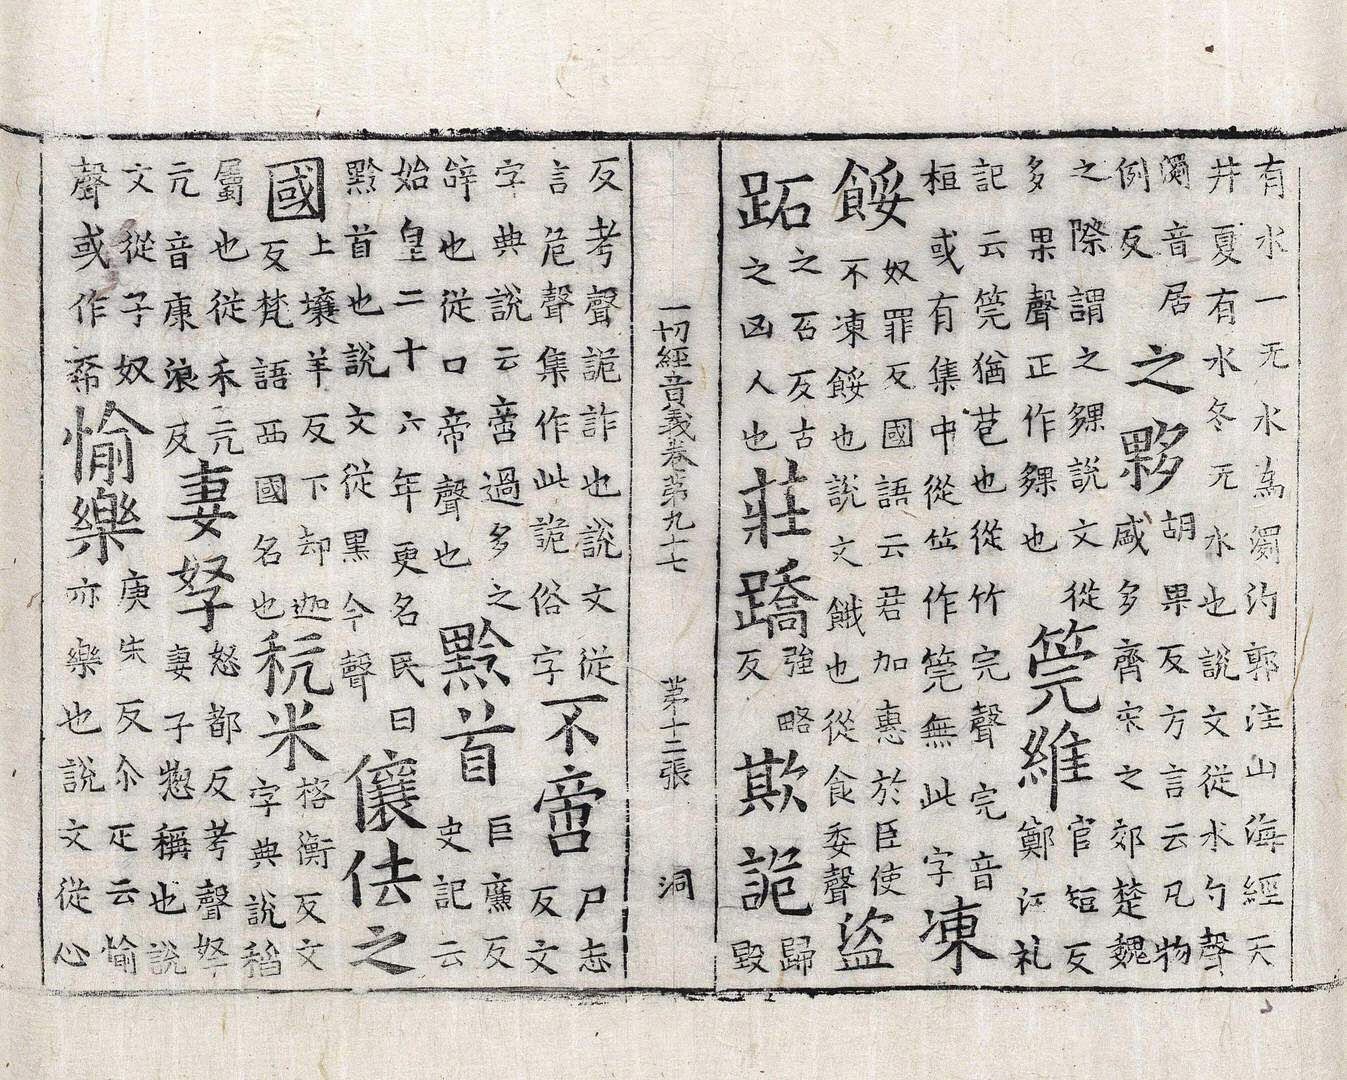 有水一无水為濁汋郭注山海經天
井夏有水冬无水也說文從水勺聲
濁音居
例反
之夥
胡果反方言云凡物
咸多齊宋之郊楚魏
之際謂之夥說文從
多果聲正作夥也
筦維
官短反
鄭江礼
記云筦猶苞也從竹完聲完音
桓或有集中從竹作筦無此字
凍
餒
奴罪反國語云君加惠於臣使
不凍餒也說文餓也從食委聲
盜
跖
之石反古
之凶人也
莊蹻
強略
反
欺詭
歸
毀
一切經音義卷第九十七 第十二張 洞
反考聲詭詐也說文從
言危聲集作此詭俗字
不啻
尸志
反文
字典說云啻過多之
辝也從口帝聲也
黔首
巨廉反
史記云
始皇二十六年更名民曰
黔首也說文從黑今聲
儴佉之
國
上壤羊反下却迦
反梵語西國名也
秔米
格衡反文
字典說稻
屬也從禾亢
亢音康浪反
妻孥
怒都反考聲孥
妻子惣稱也說
文從子奴
聲或作帑
愉樂
庚朱反尒疋云愉
亦樂也說文從心